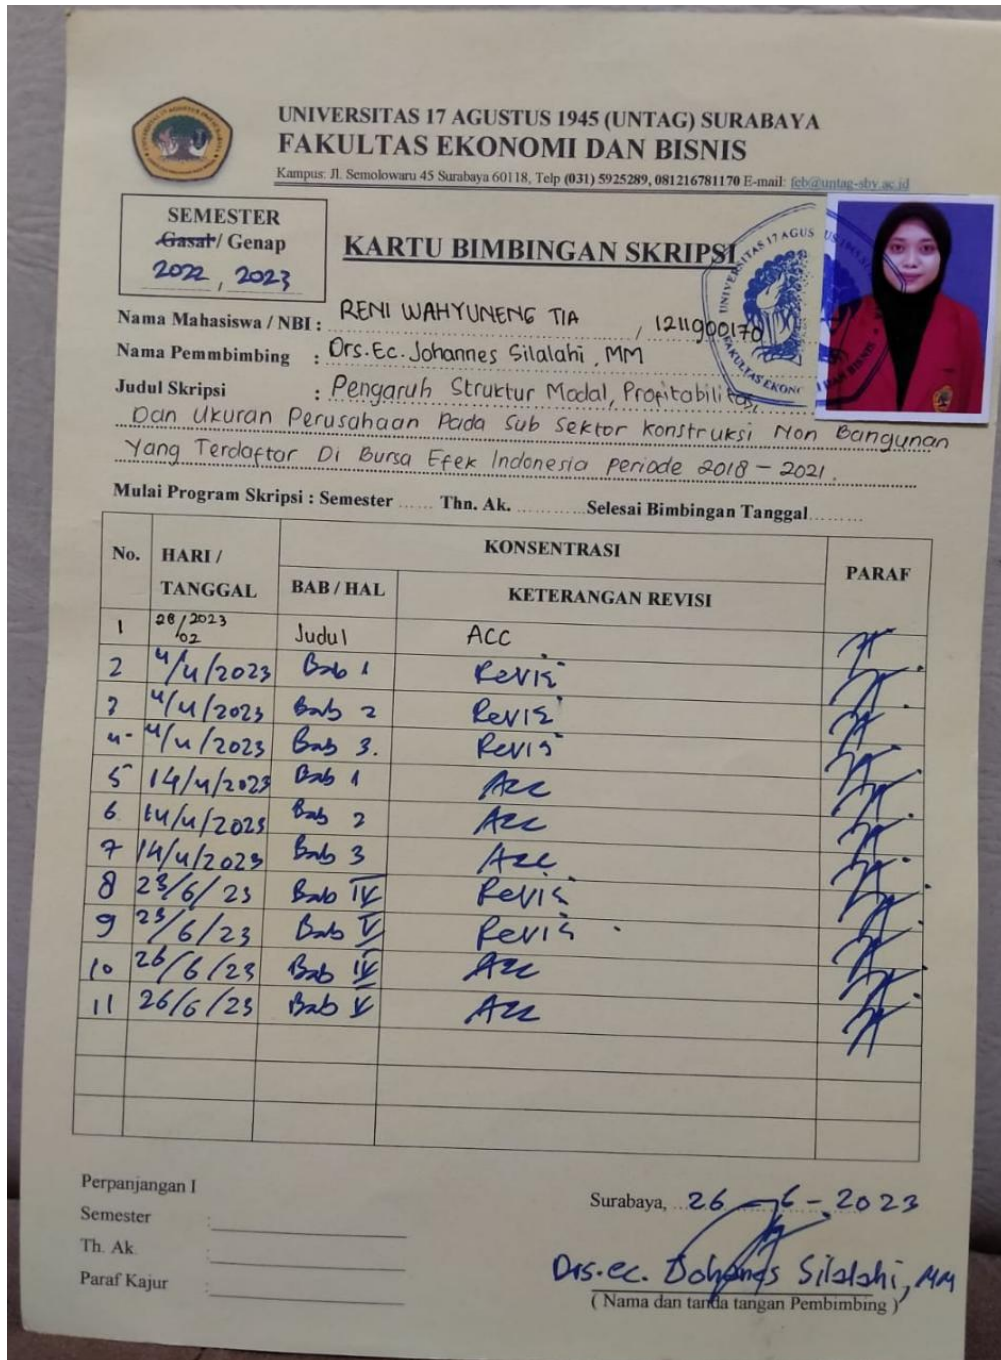 UNIVERSITAS 17 AGUSTUS 1945 (UNTAG) SURABAYA
FAKULTAS EKONOMI DAN BISNIS
Kampus: Jl. Semolowaru 45 Surabaya 60118, Telp (031) 5925289, 081216781170 E-mail: feb@untag-sby.ac.id
SEMESTER
Gasal / Genap
2022, 2023
KARTU BIMBINGAN SKRIPSI
Nama Mahasiswa / NBI : RENI WAHYUNENG TIA , 1211900170
Nama Pemmbimbing : Drs.Ec. Johannes Silalahi, MM
Judul Skripsi : Pengaruh Struktur Modal, Profitabilitas,
Dan Ukuran Perusahaan Pada Sub Sektor Konstruksi Non Bangunan
Yang Terdaftar Di Bursa Efek Indonesia Periode 2018 - 2021.
Mulai Program Skripsi : Semester ...... Thn. Ak. ............Selesai Bimbingan Tanggal.........
No. HARI / TANGGAL KONSENTRASI PARAF
BAB / HAL KETERANGAN REVISI
1 28/02 2023 Judul ACC
2 4/4/2023 Bab 1 Revisi
3 4/4/2023 Bab 2 Revisi
4- 4/4/2023 Bab 3. Revisi
5 14/4/2023 Bab 1 Acc
6 14/4/2023 Bab 2 Acc
7 14/4/2023 Bab 3 Acc
8 23/6/23 Bab IV Revisi
9 23/6/23 Bab V Revisi
10 26/6/23 Bab IV Acc
11 26/6/23 Bab V Acc
Perpanjangan I
Semester :
Th. Ak. :
Paraf Kajur :
Surabaya, 26 - 6 - 2023
Drs.ec. Johanes Silalahi, MM
( Nama dan tanda tangan Pembimbing )